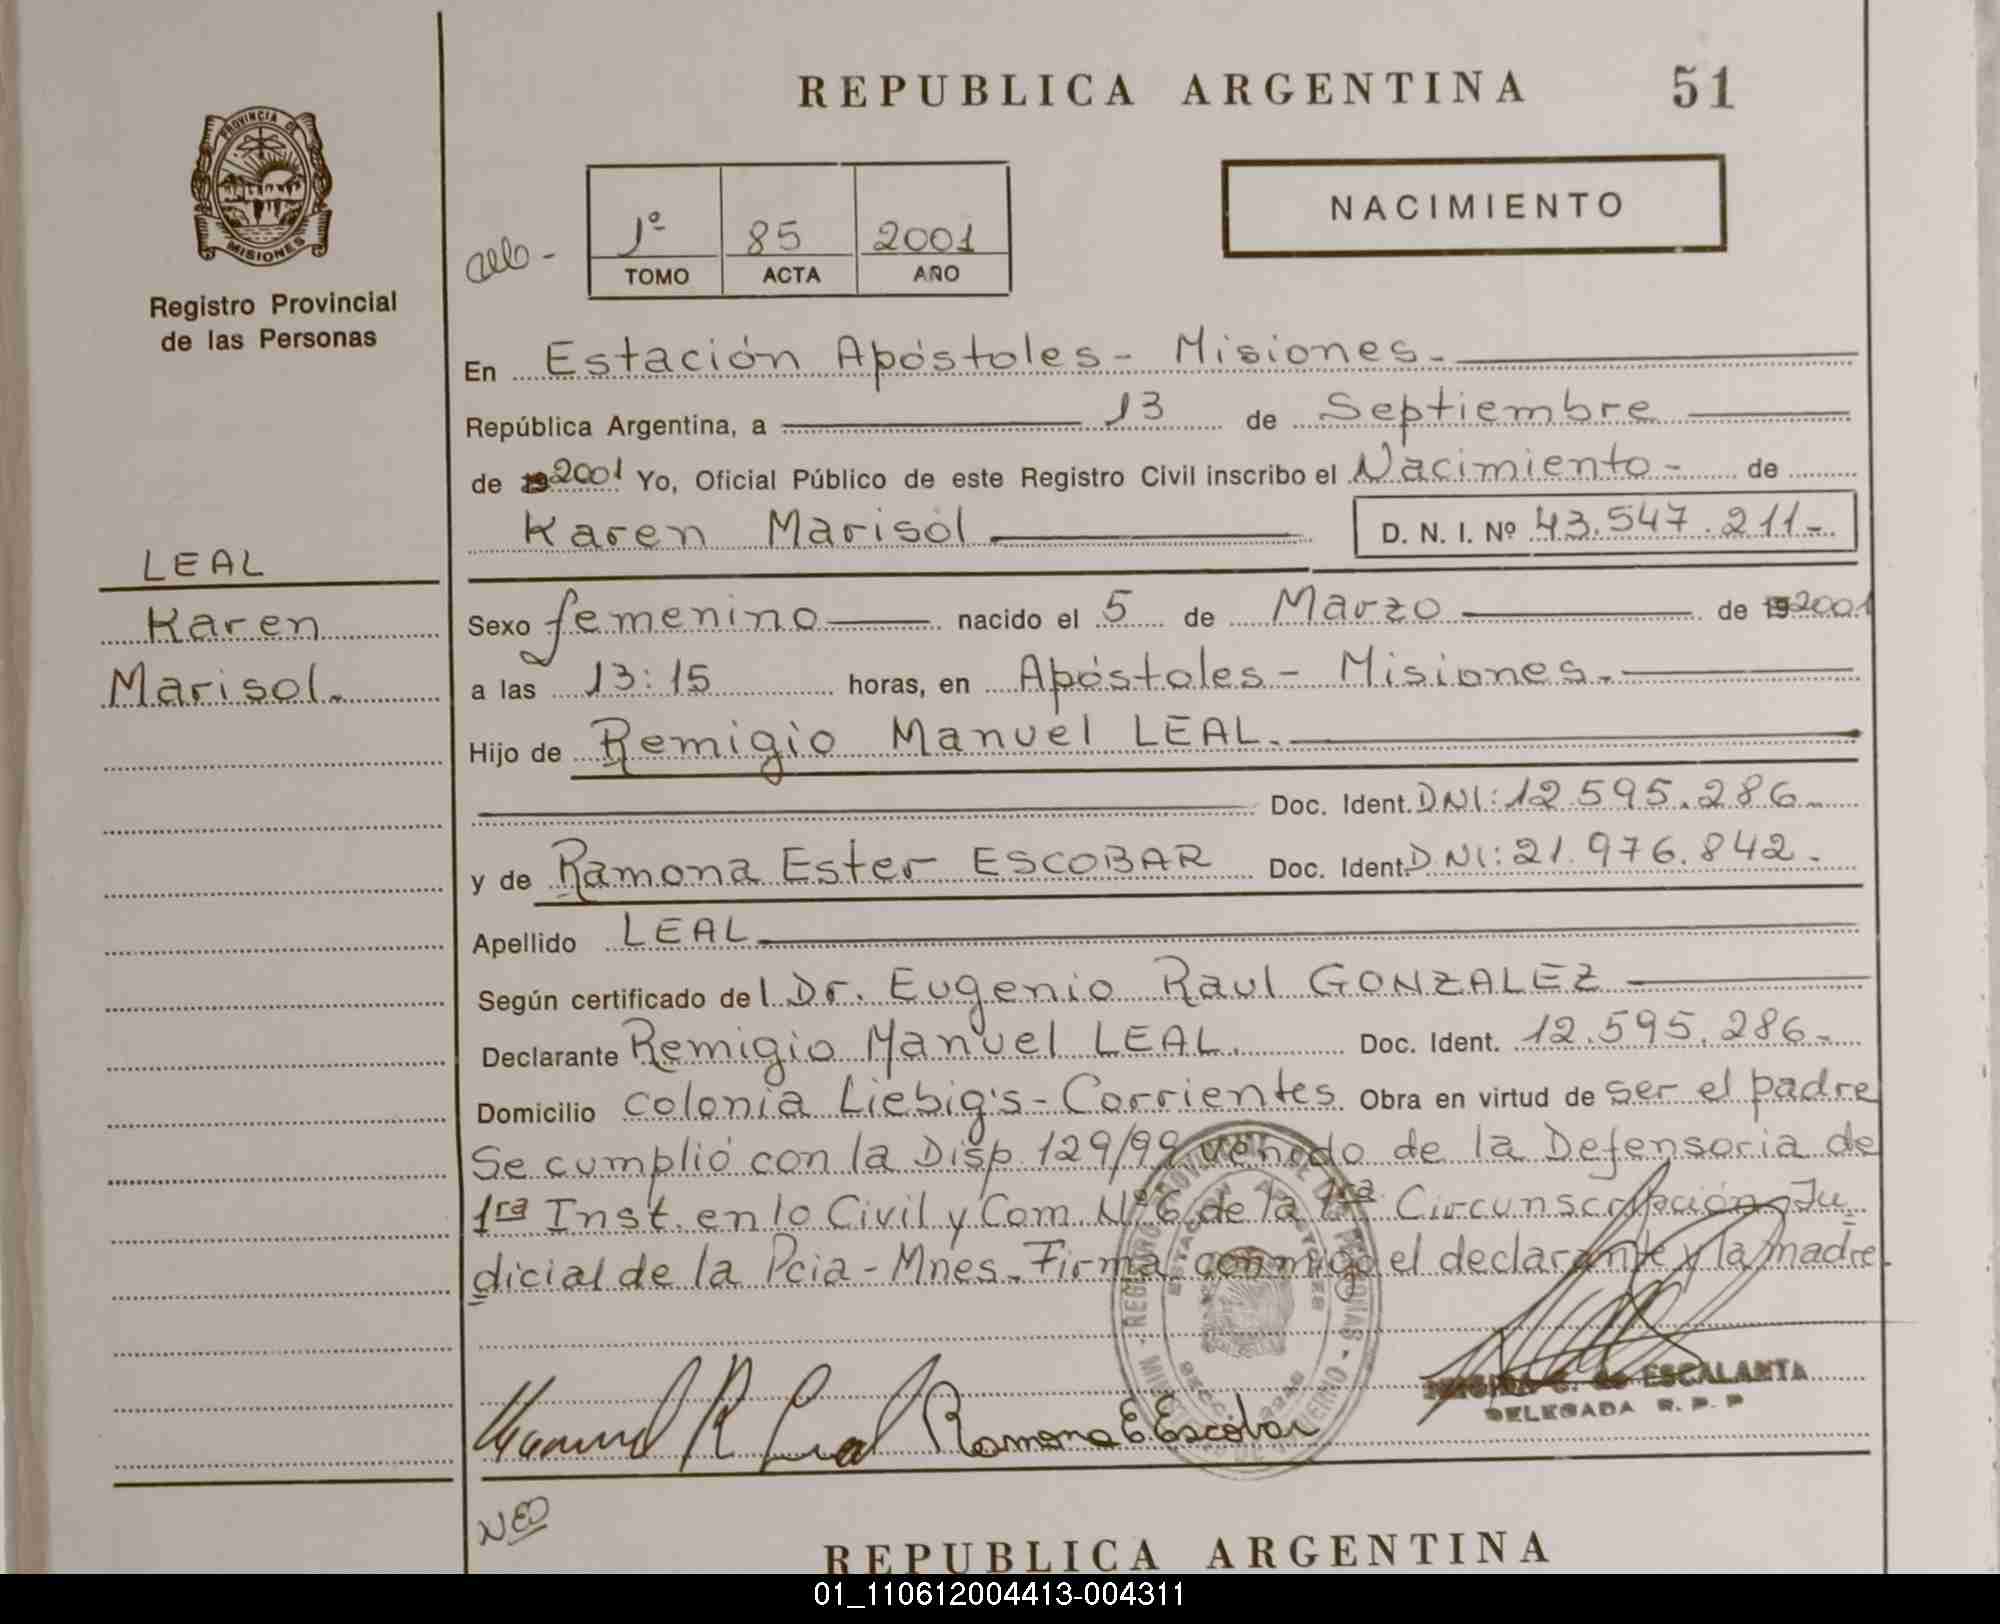 REPUBLICA ARGENTINA 51
PROVINCIA DE
MISIONES
Registro Provincial
de las Personas
1º 85 2001
TOMO ACTA AÑO
NACIMIENTO
En Estación Apóstoles - Misiones.
República Argentina, a 13 de Septiembre
de 2001 Yo, Oficial Público de este Registro Civil inscribo el Nacimiento - de
Karen Marisol D. N. I. Nº 43.547.211-.
LEAL
Karen
Marisol.
Sexo femenino nacido el 5 de Marzo de 2001
a las 13:15 horas, en Apóstoles - Misiones.
Hijo de Remigio Manuel LEAL.
Doc. Ident. DNI: 12.595.286.
y de Ramona Ester ESCOBAR Doc. Ident. DNI: 21.976.842.
Apellido LEAL
Según certificado del Dr. Eugenio Raul GONZALEZ
Declarante Remigio Manuel LEAL. Doc. Ident. 12.595.286.
Domicilio colonia Liebig's - Corrientes Obra en virtud de ser el padre
Se cumplió con la Disp. 129/99 de la Defensoria de
1ra Inst. en lo Civil y Com. Nº 6 de la 1ra Circunscripción Ju
dicial de la Pcia - Mnes. Firma conmigo el declarante y la madre.
Manuel R Leal Ramona E. Escobar
de ESCALANTA
DELEGADA R. P. P
NEO
REPUBLICA ARGENTINA
01_110612004413-004311